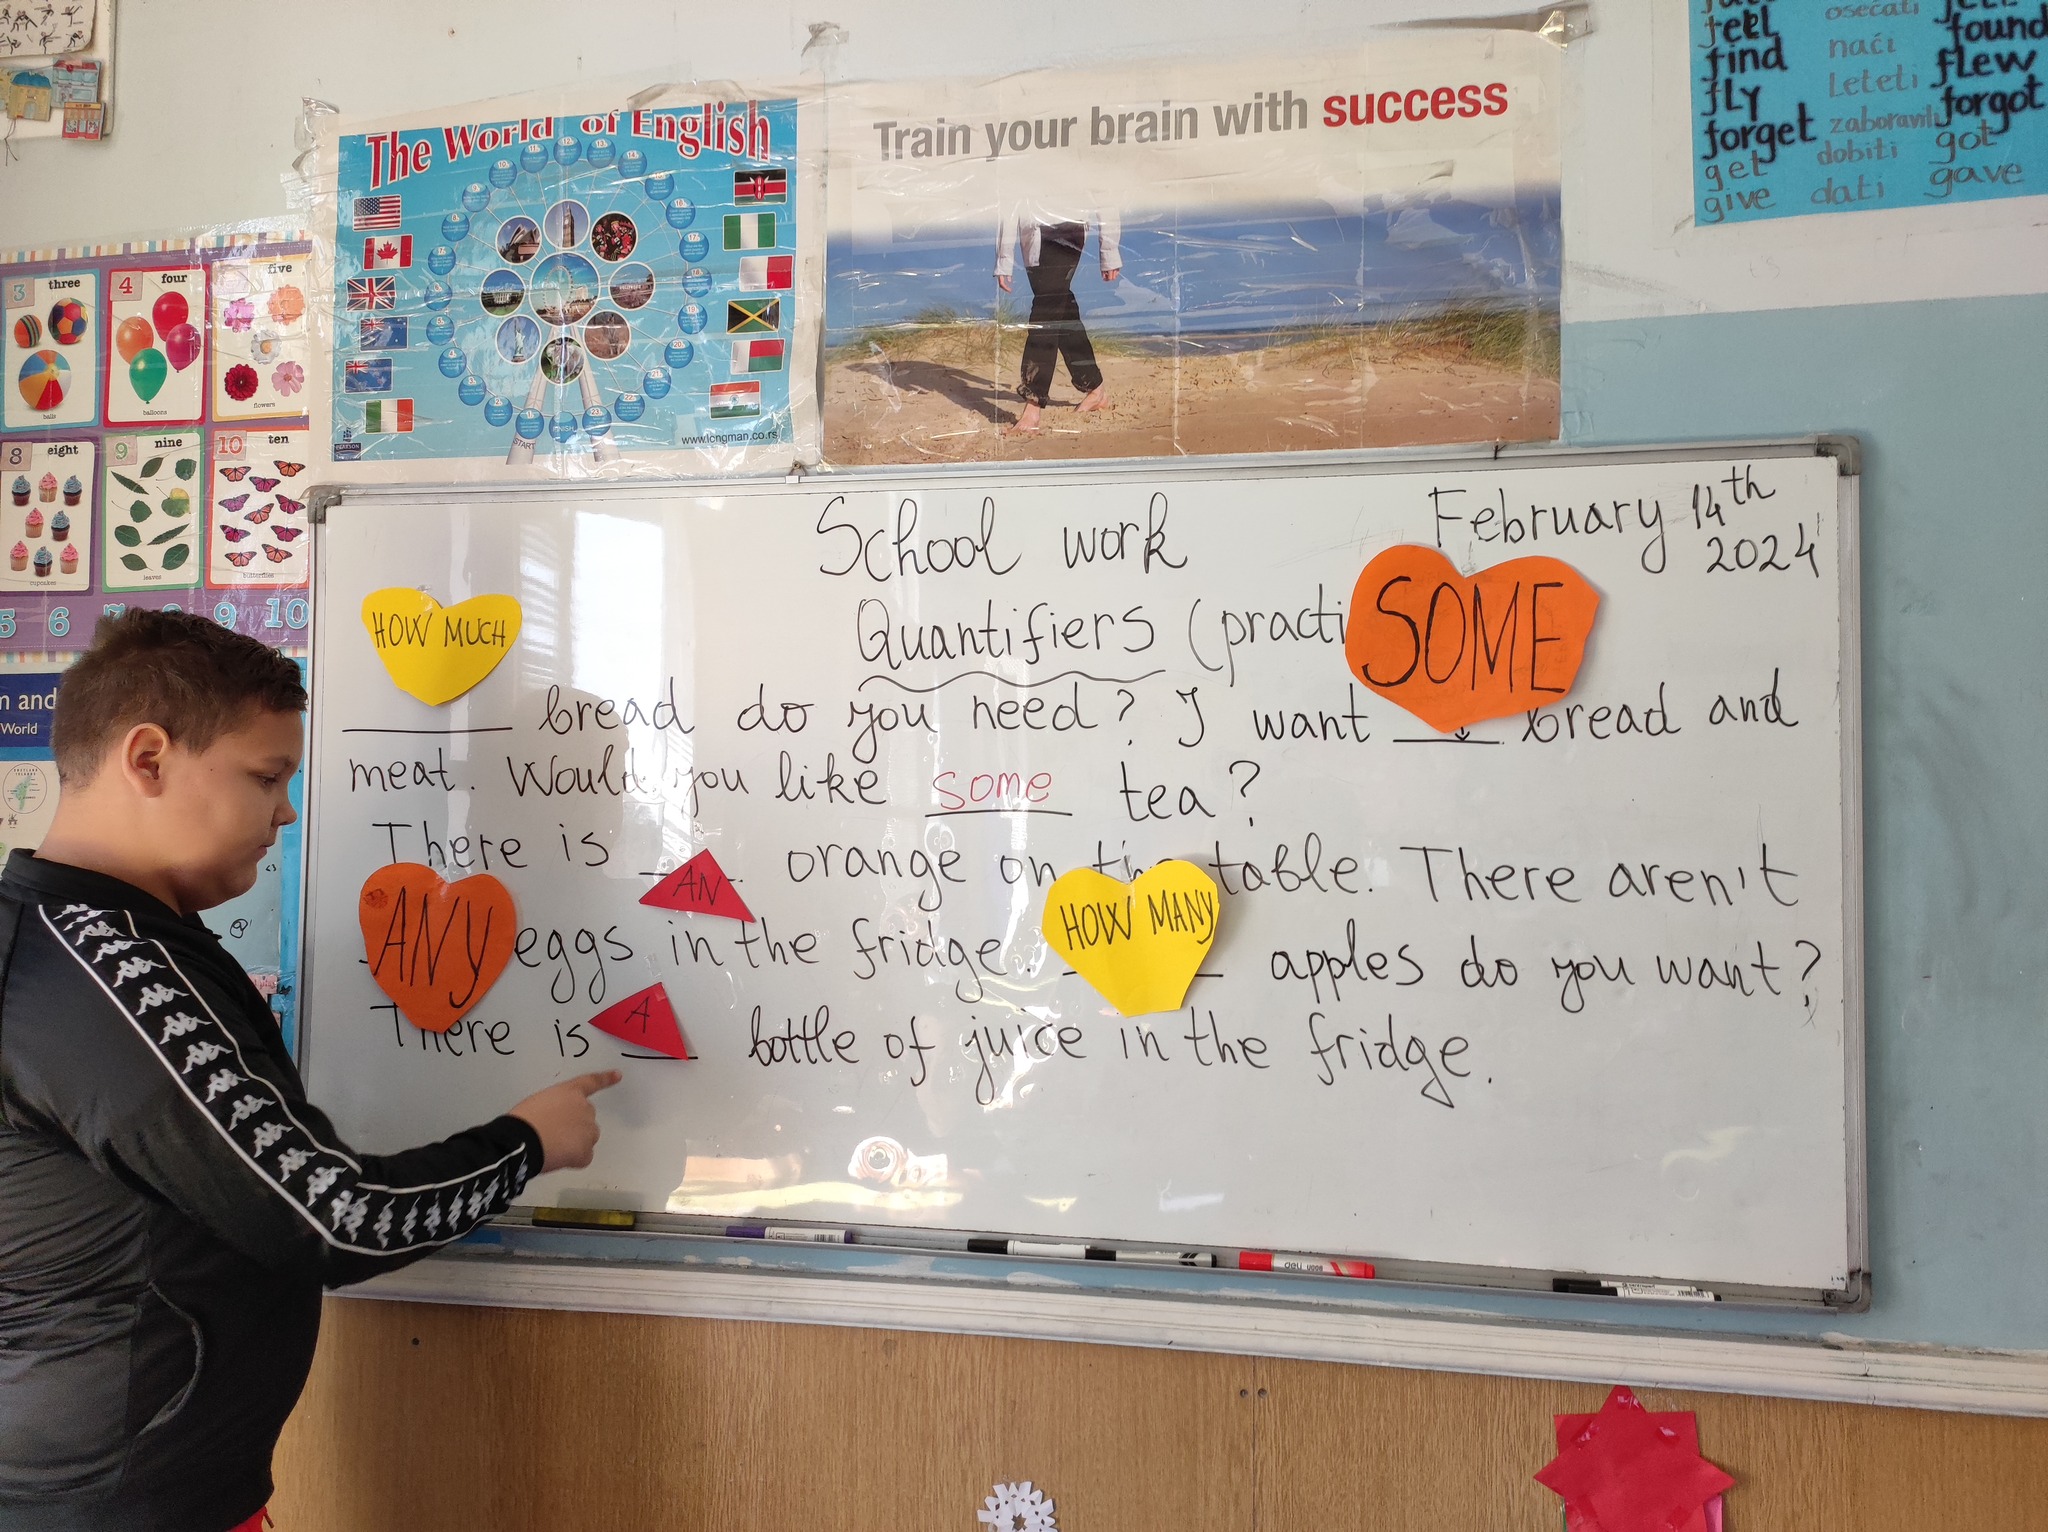 The World of English
START
FINISH
www.longman.co.rs
Train your brain with success
feel osećati
find naći found
fly leteti flew
forget zaboraviti forgot
get dobiti got
give dati gave
3 three
balls
4 four
balloons
five
flowers
8 eight
cupcakes
9 nine
leaves
10 ten
butterflies
5 6 7 8 9 10
m and
World
School work
February 14th
2024
Quantifiers (practi
HOW MUCH
SOME
bread do you need? I want bread and
meat. Would you like some tea?
There is AN orange on the table. There aren't
ANY eggs in the fridge. HOW MANY apples do you want?
There is A bottle of juice in the fridge.
deli